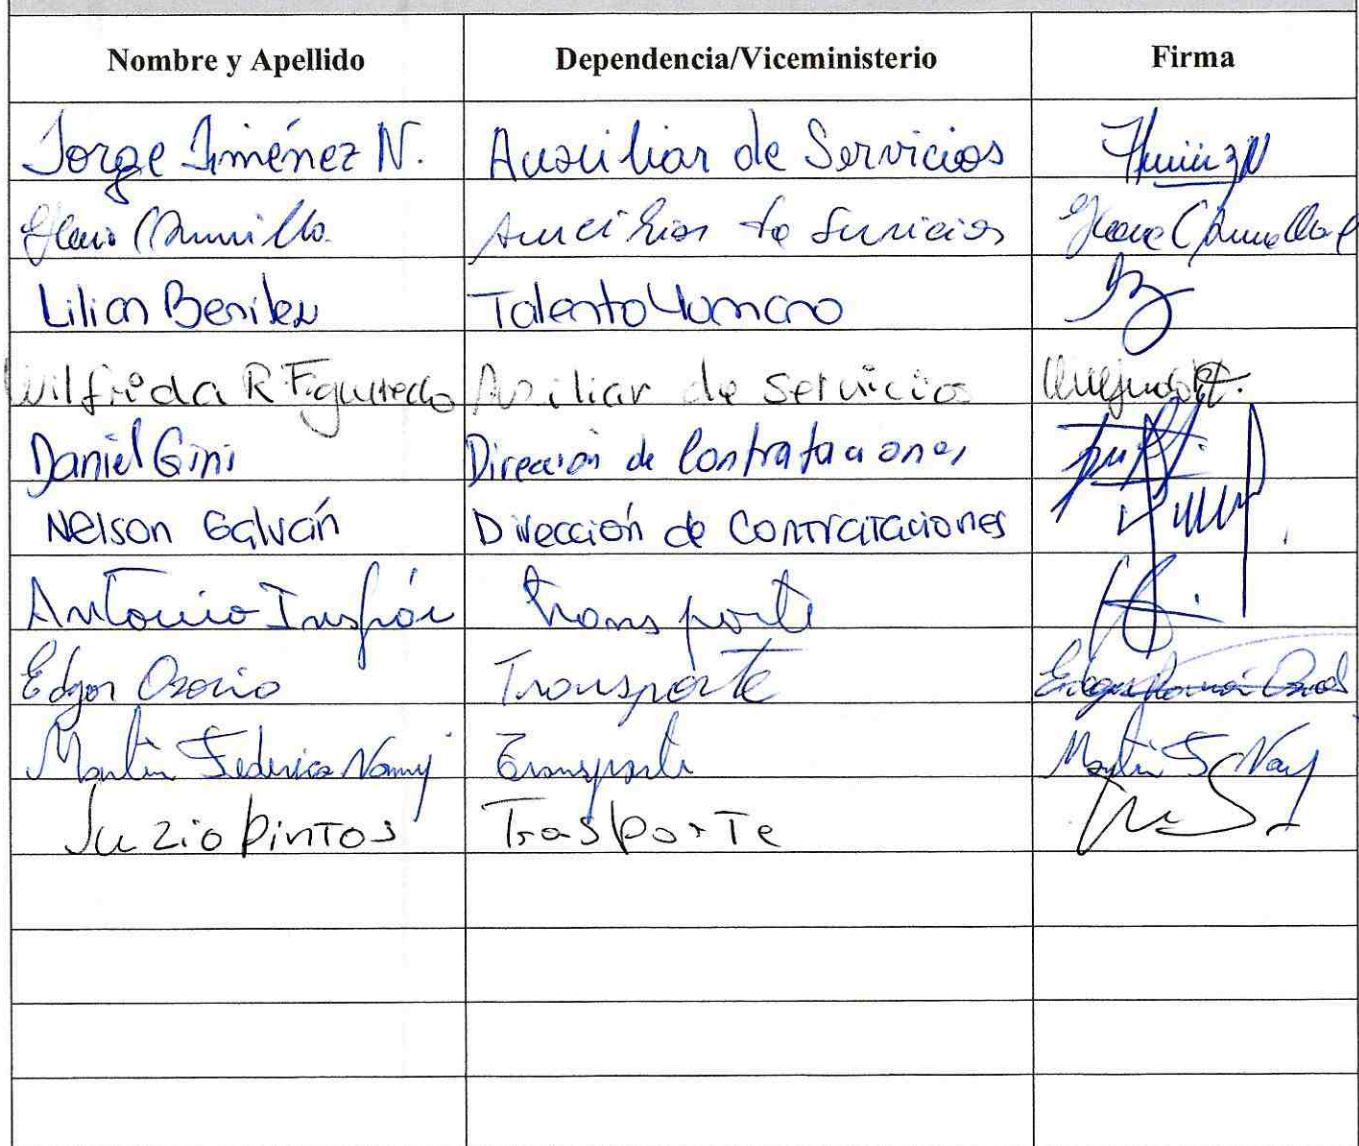 Nombre y Apellido Dependencia/Viceministerio Firma
Jorge Jiménez N. Auxiliar de Servicios
Auxiliar de Servicios
Lilian Benitez Talento Humano
Wilfrida R Figueredo Auxiliar de Servicios
Daniel Gini Dirección de Contrataciones
Nelson Galván Dirección de Contrataciones
Antonio Insfrán transporte
Edgar Osorio Transporte
Martin Federico Transporte Martin F
Juzio Pintos Trasporte